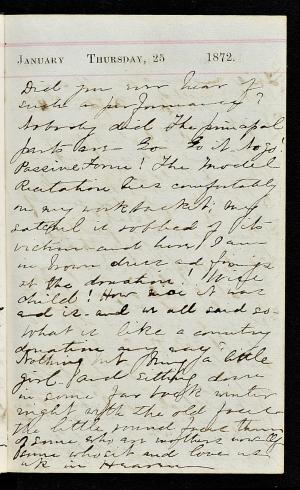 January Thursday, 25 1872.
Did you ever hear of
such a performance?
Nobody did The principal
parts are Go
Passive Form! The Model
Recitation lies comfortably
on my work basket; my
satchel is robbed of its
victim and here I am
in brown dress
at the donation!
child! How nice it was
and is and we all said so
what is like a country
donation any way?
Nothing but being a little
girl and sitting down
in some far back winter
night with the old faces
the little round faces
of some who are mothers now
some who sit and love us
in Heaven